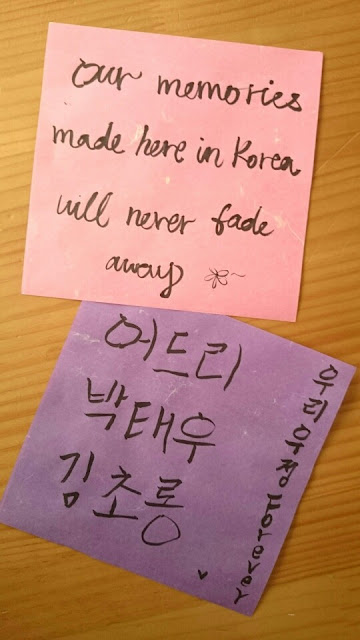 our memories
made here in Korea
will never fade
away
어드리
박태우
김초롱
우리우정Forever